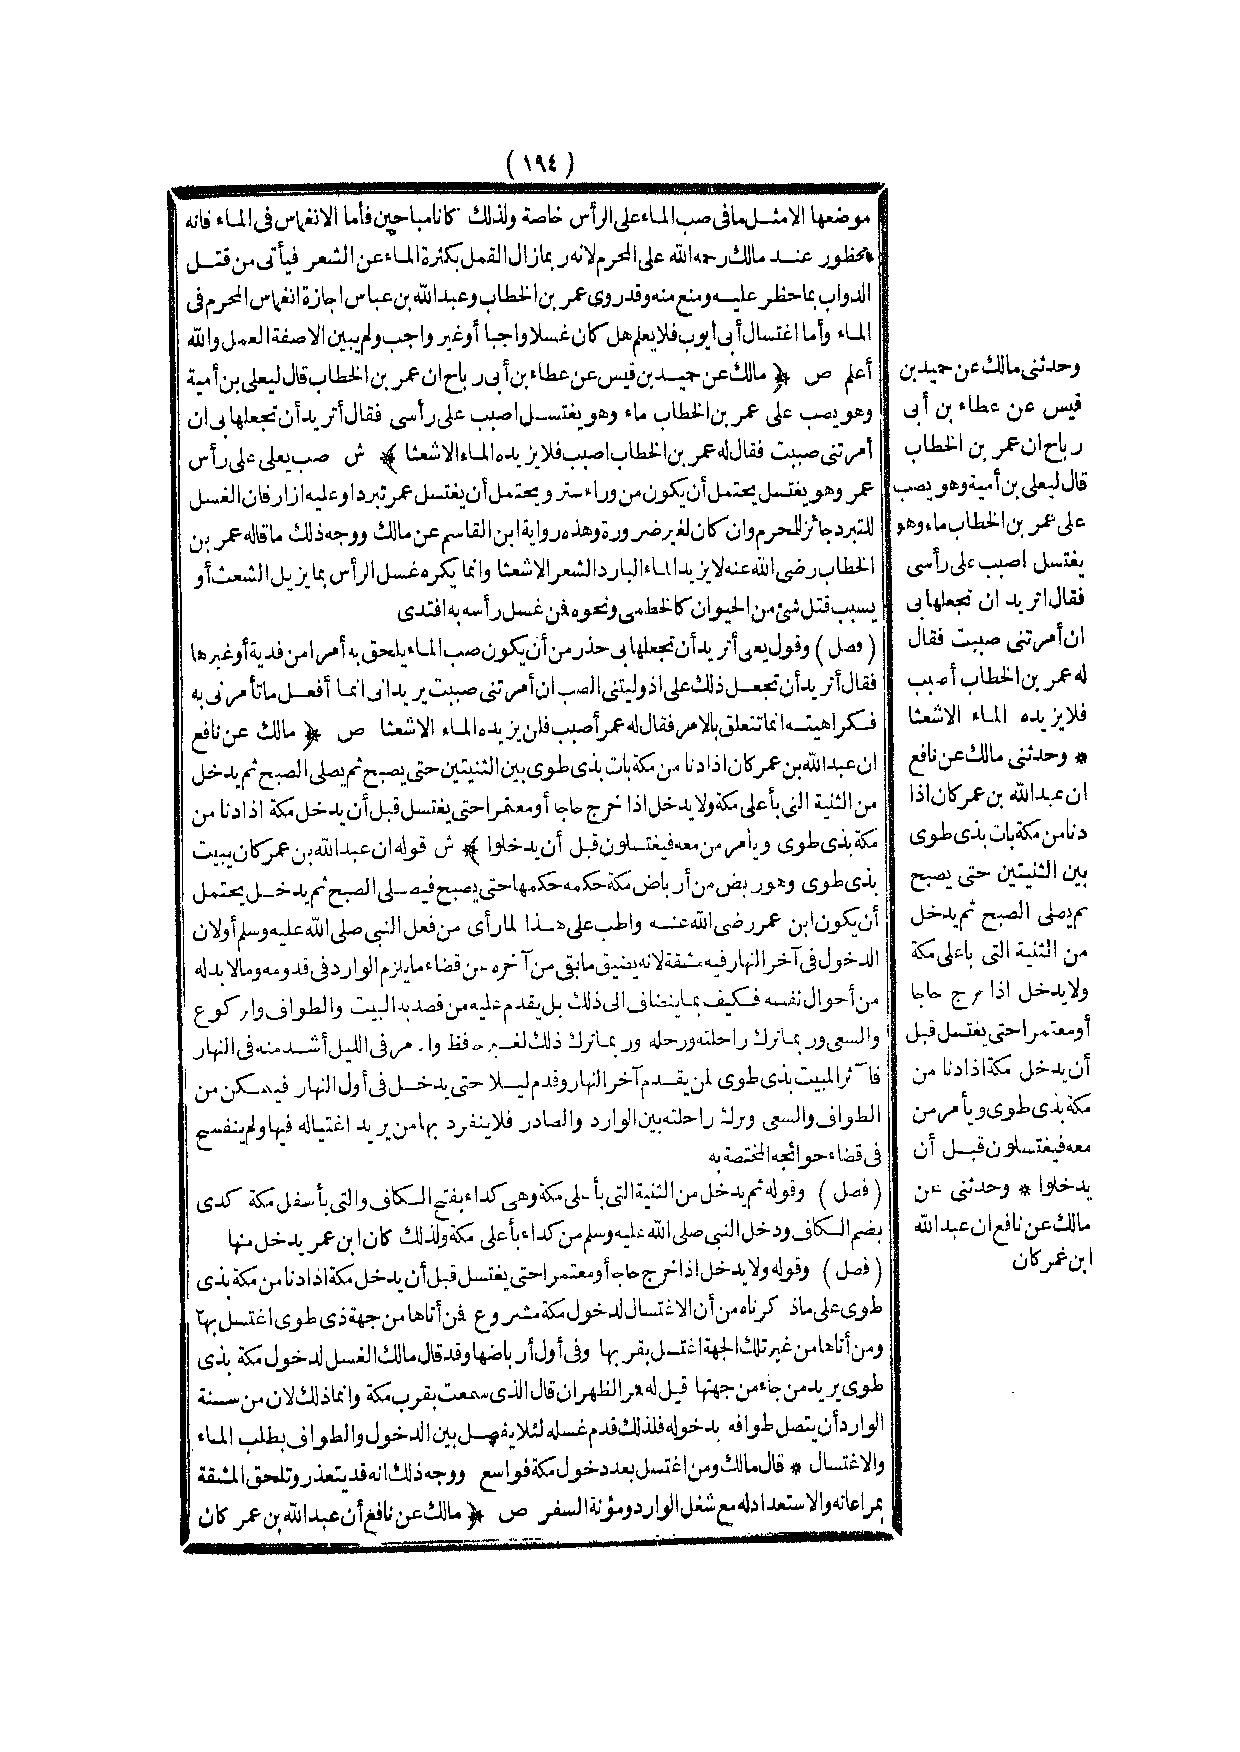 (١٩٤)
موضعها الامثل مافى صب الماء على الرأس خاصة ولذلك كانا مباحين فأما الانغماس فى الماء فانه
محظور عند مالك رحمه الله على المحرم لانه ربمازال القمل بكثرة الماء عن الشعر فيأتى من قتل
الدواب بما حظر عليه ومنع منه وقد روى عمر بن الخطاب وعبد الله بن عباس اجازة انغماس المحرم فى
الماء وأما اغتسال أبى أيوب فلا يعلم هل كان غسلا واجبا أو غير واجب ولم يبين الا صفة العمل والله
أعلم ص ﴿ مالك عن حميد بن قيس عن عطاء بن أبى رباح ان عمر بن الخطاب قال ليعلى بن أمية
وهو يصب على عمر بن الخطاب ماء وهو يغتسل اصبب على رأسى فقال أتريد أن تجعلها بى ان
أمرتنى صببت فقال له عمر بن الخطاب اصبب فلا يزيده الماء الا شعثا ﴾ ش صب يعلى على رأس
عمر وهو يغتسل يحتمل أن يكون من وراء ستر ويحتمل أن يغتسل عمر تبردا وعليه ازار فان الغسل
للتبرد جائز للمحرم وان كان لغير ضرورة وهذه رواية ابن القاسم عن مالك ووجه ذلك ما قاله عمر بن
الخطاب رضى الله عنه لا يزيد الماء البارد الشعر الا شعثا وانما يكره غسل الرأس بما يزيل الشعث أو
يسبب قتل شئ من الحيوان كالخطمى ونحوه فمن غسل رأسه به افتدى
(فصل) وقول يعلى أتريد أن تجعلها بى حذر من أن يكون صب الماء يلحق به أمرا من فدية أو غيرها
فقال أتريد أن تجعل ذلك على اذ وليتنى الصب ان أمرتنى صببت يريد انى انما أفعل ما تأمرنى به
فكراهيته انما تتعلق بالامر فقال له عمر أصبب فلن يزيده الماء الا شعثا ص ﴿ مالك عن نافع
ان عبد الله بن عمر كان اذا دنا من مكة بات بذى طوى بين الثنيتين حتى يصبح ثم يصلى الصبح ثم يدخل
من الثنية التى بأعلى مكة ولا يدخل اذا خرج حاجا أو معتمرا حتى يغتسل قبل أن يدخل مكة اذا دنا من
مكة بذى طوى ويأمر من معه فيغتسلون قبل أن يدخلوا ﴾ ش قوله ان عبد الله بن عمر كان يبيت
بذى طوى وهو ربض من أرباض مكة حكمه حكمها حتى يصبح فيصلى الصبح ثم يدخل يحتمل
أن يكون ابن عمر رضى الله عنه واطب على هذا لما رأى من فعل النبى صلى الله عليه وسلم أولان
الدخول فى آخر النهار فيه مشقة لانه يضيق ما بقى من آخره عن قضاء ما يلزم الوارد فى قدومه وما لا بد له
من أحوال نفسه فكيف بما يضاف الى ذلك بل يقدم عليه من قصد به البيت والطواف والركوع
والسعى وربما ترك راحلته ورحله وربما ترك ذلك لغير حفظ والامر فى الليل أشد منه فى النهار
فآثر المبيت بذى طوى لمن يقدم آخر النهار وقدم ليلا حتى يدخل فى أول النهار فيتمكن من
الطواف والسعى وترك راحلته بين الوارد والصادر فلا ينفرد بها من يريد اغتياله فيها ولم ينفسح
فى قضاء حوائجه المختصة به
(فصل) وقوله ثم يدخل من الثنية التى بأعلى مكة وهى كداء بفتح الكاف والتى بأسفل مكة كدى
بضم الكاف ودخل النبى صلى الله عليه وسلم من كداء بأعلى مكة ولذلك كان ابن عمر يدخل منها
(فصل) وقوله ولا يدخل اذا خرج حاجا أو معتمرا حتى يغتسل قبل أن يدخل مكة اذا دنا من مكة بذى
طوى على ما ذكرناه من أن الاغتسال لدخول مكة مشروع فمن أتاها من جهة ذى طوى اغتسل بها
ومن أتاها من غير تلك الجهة اغتسل بقربها وفى أول أرباضها وقد قال مالك الغسل لدخول مكة بذى
طوى يريد من جاء من جهتها قيل له مر الظهران قال الذى سمعت بقرب مكة وانما ذلك لان من سنة
الوارد أن يتصل طوافه بدخوله فلذلك قدم غسله لئلا يفصل بين الدخول والطواف بطلب الماء
والاغتسال * قال مالك ومن اغتسل بعد دخول مكة فواسع ووجه ذلك انه قد يتعذر وتلحق المشقة
بمراعاته والاستعداد له مع شغل الوارد ومؤنة السفر ص ﴿ مالك عن نافع أن عبد الله بن عمر كان
وحدثنى مالك عن حميد بن
قيس عن عطاء بن أبى
رباح ان عمر بن الخطاب
قال ليعلى بن أمية وهو يصب
على عمر بن الخطاب ماء وهو
يغتسل اصبب على رأسى
فقال اتريد ان تجعلها بى
ان أمرتنى صببت فقال
له عمر بن الخطاب أصبب
فلا يزيده الماء الا شعثا
* وحدثنى مالك عن نافع
ان عبد الله بن عمر كان اذا
دنا من مكة بات بذى طوى
بين الثنيتين حتى يصبح
ثم يصلى الصبح ثم يدخل
من الثنية التى باعلى مكة
ولا يدخل اذا خرج حاجا
أو معتمرا حتى يغتسل قبل
أن يدخل مكة اذا دنا من
مكة بذى طوى ويأمر من
معه فيغتسلون قبل أن
يدخلوا * وحدثنى عن
مالك عن نافع ان عبد الله
ابن عمر كان